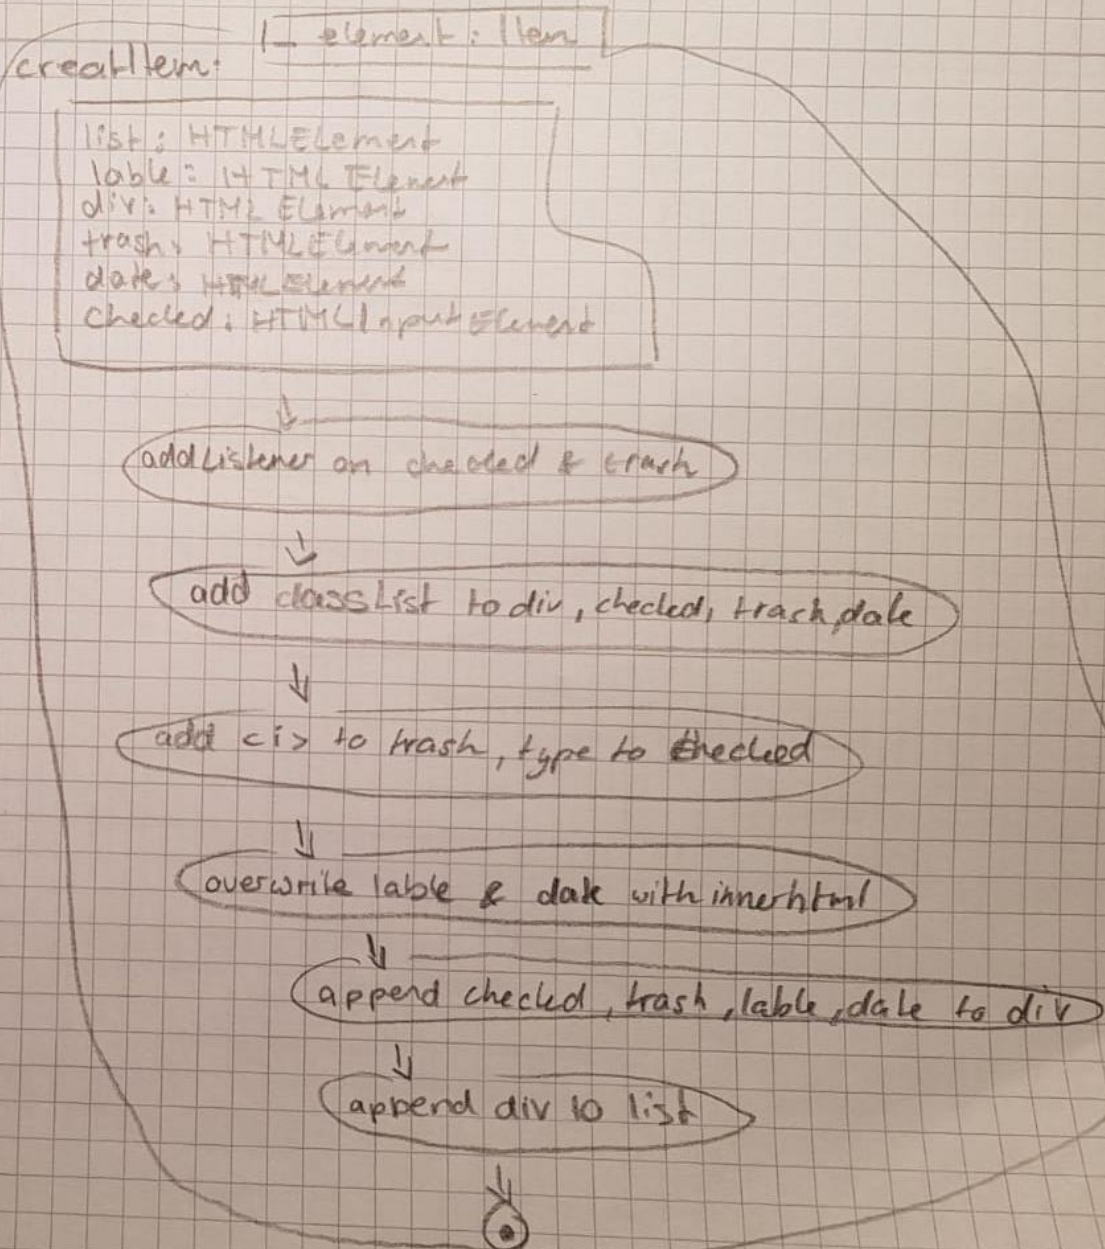 _ element: Item
creatItem:
list: HTMLElement
lable: HTML Element
div: HTML Element
trash: HTMLElement
date: HTMLElement
checked: HTMLInputElement
addListener on checked & trash
add classList to div, checked, trash, date
add <i> to trash, type to checked
overwrite lable & date with innerhtml
append checked, trash, lable, date to div
append div to list